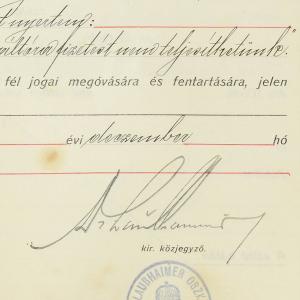 nyertem:
fizetést nem teljesíthetünk."
fél jogai megóvására és fentartására, jelen
évi deczember hó
kir. közjegyző.
LAUBHAIMER OSZK